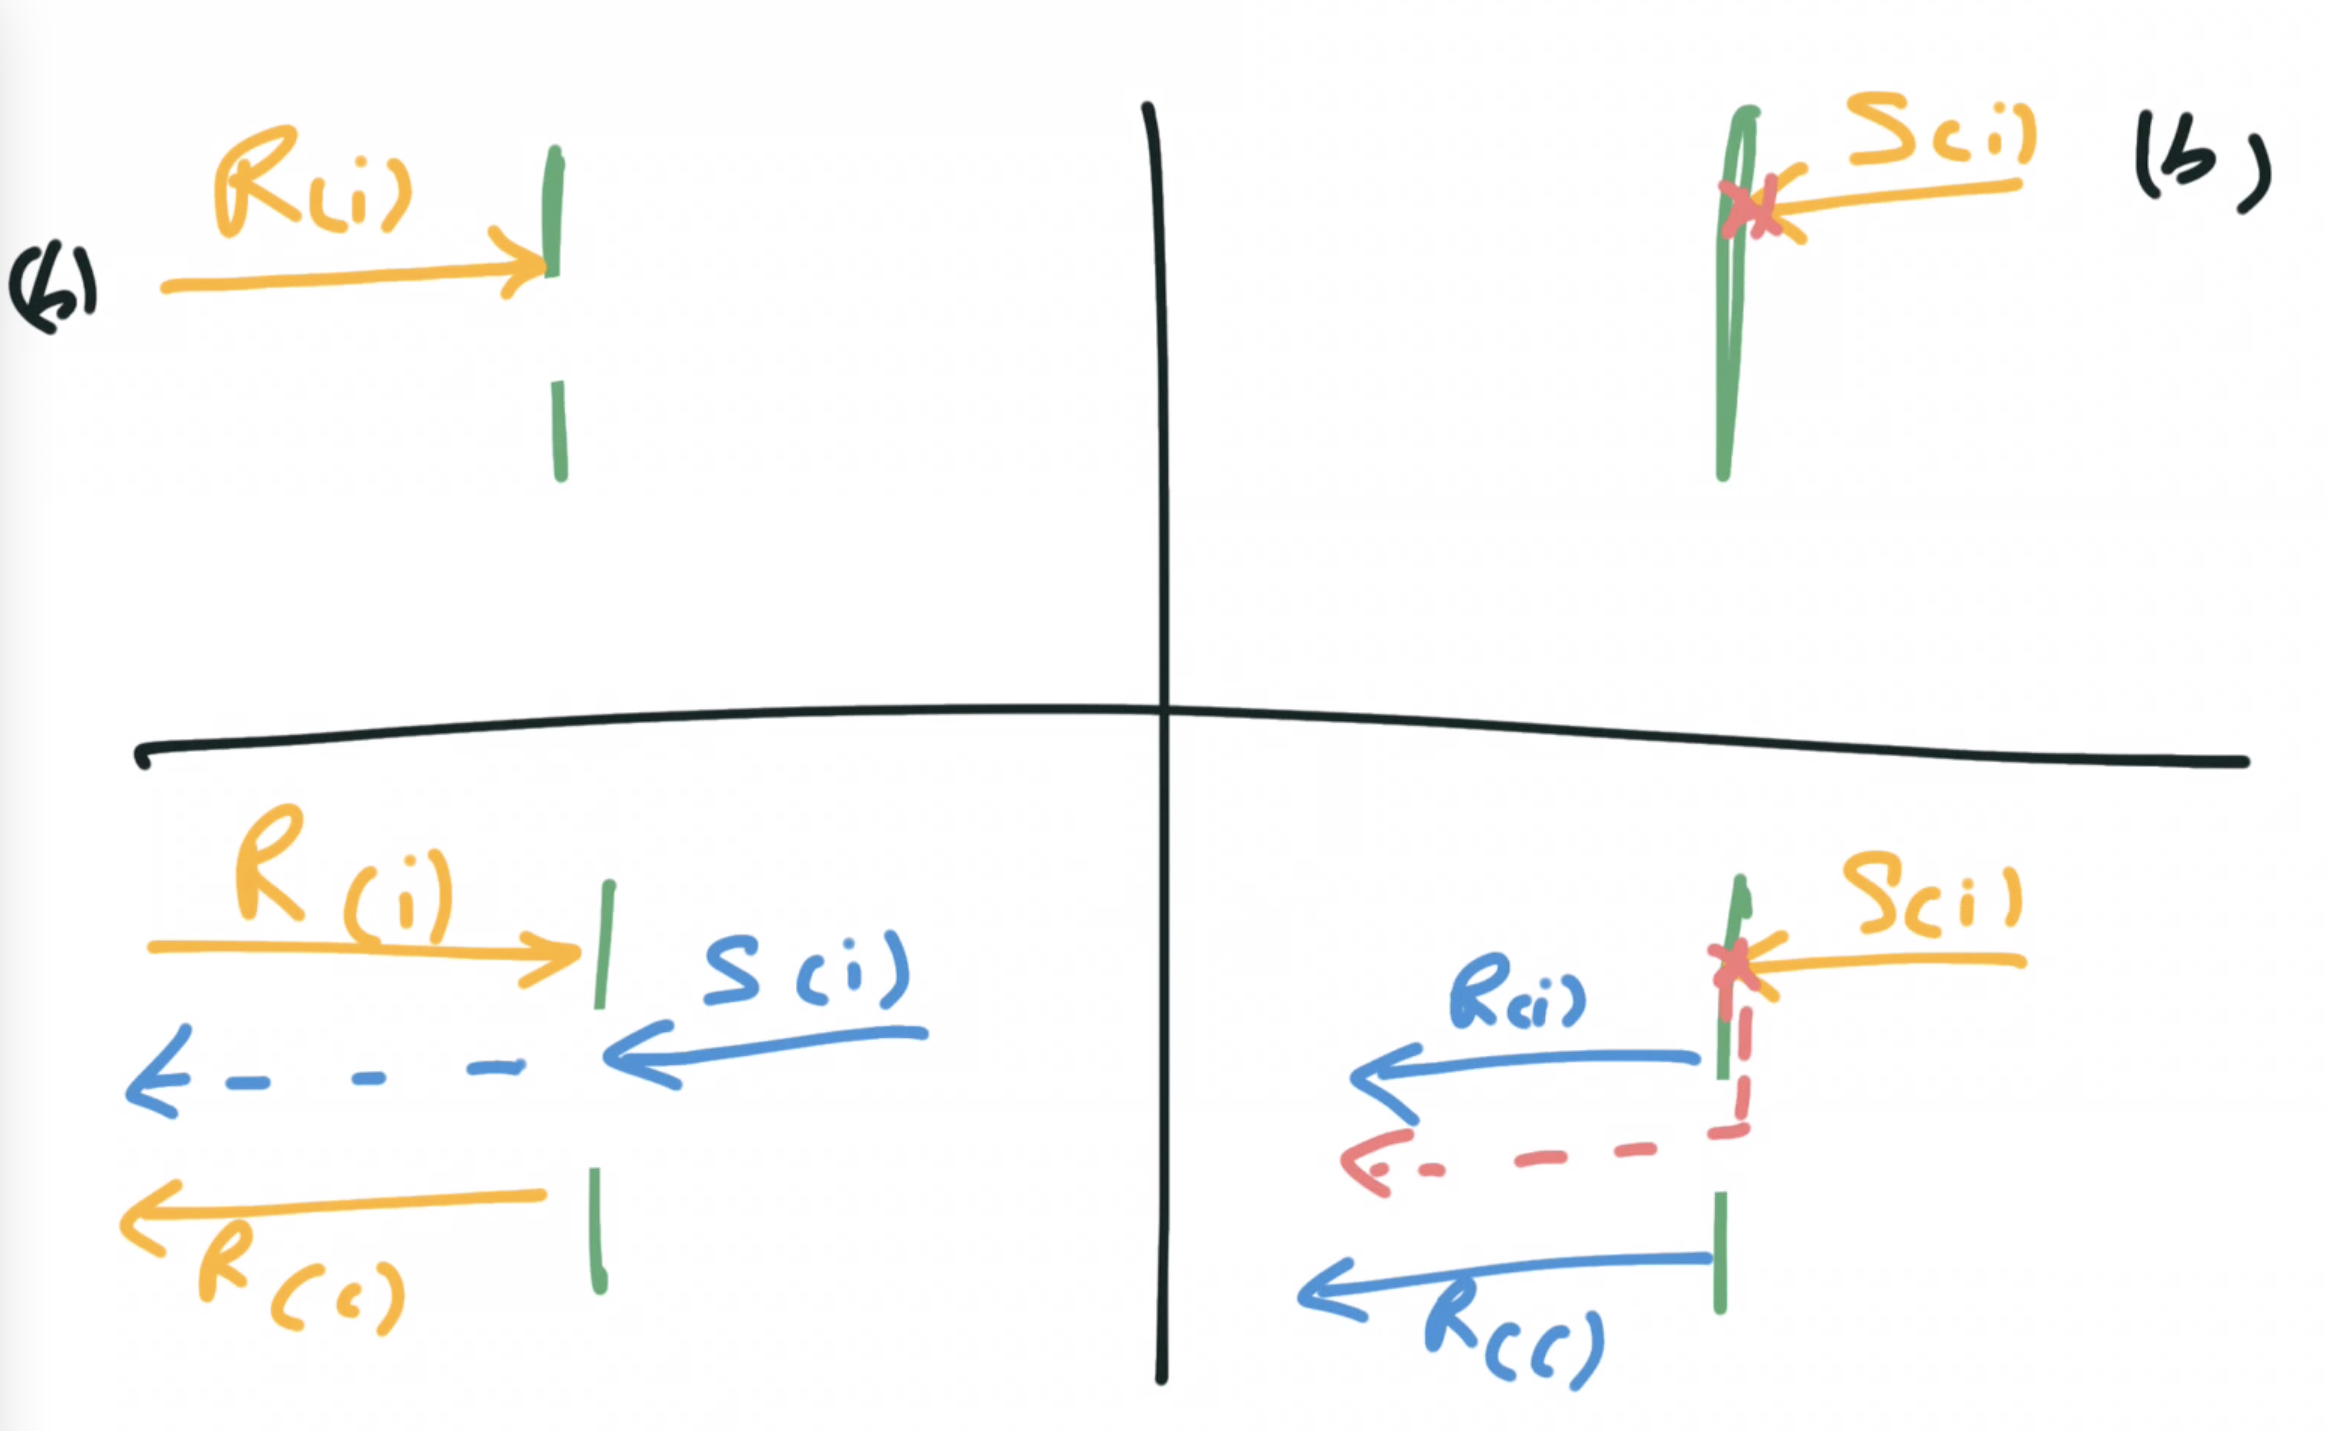 R(i)
(b)
S(i)
(b)
R(i)
S(i)
R(c)
S(i)
R(i)
R(c)